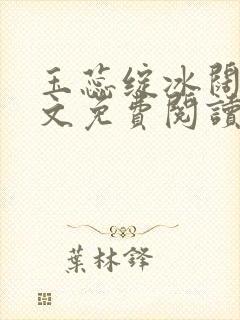 玉蕊綻冰閣
文免費閱讀
葉林鋒